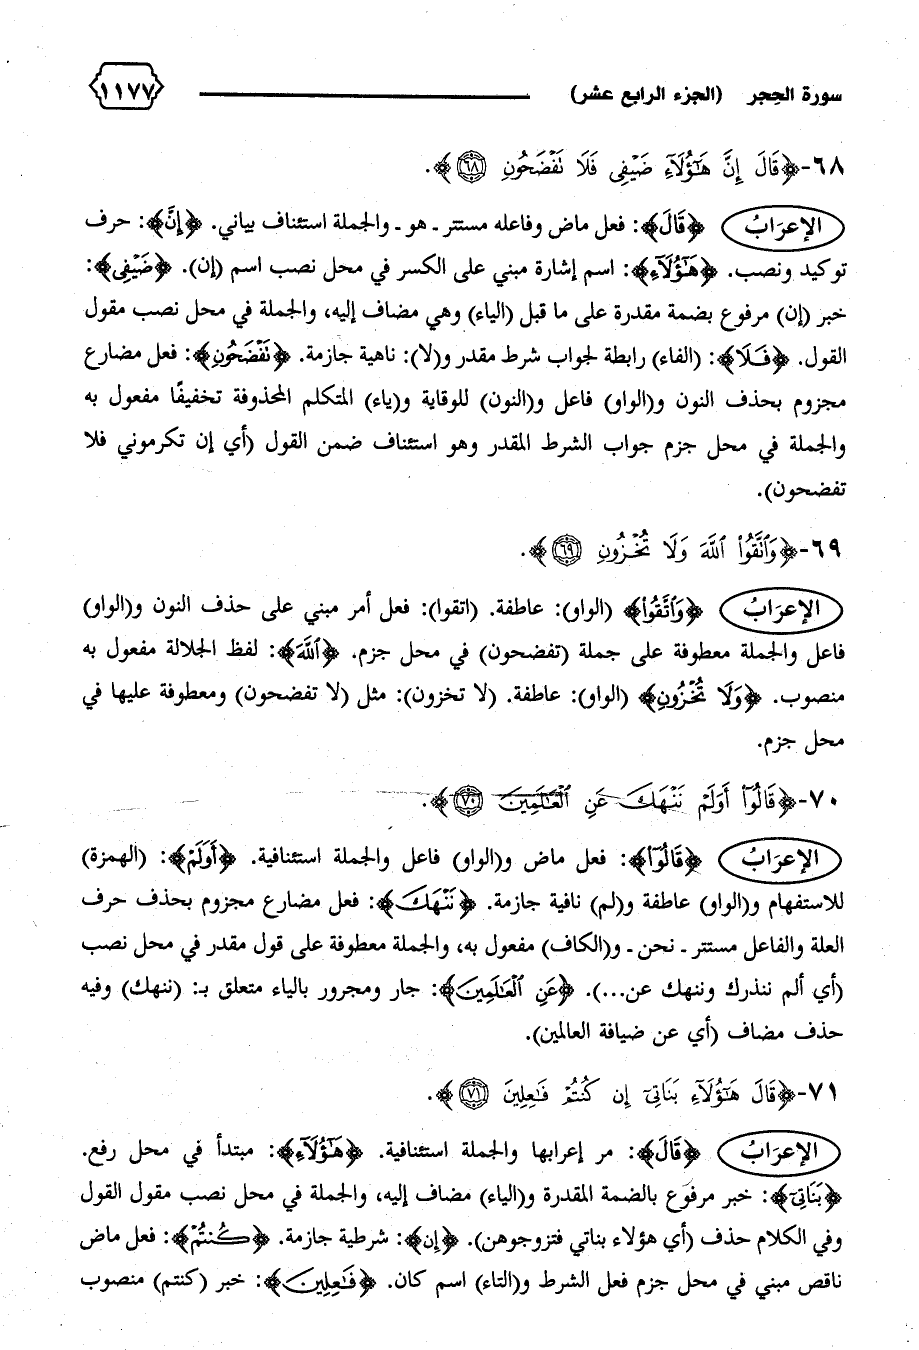 سورة الحجر (الجزء الرابع عشر) ١١٧٧
٦٨-﴿قَالَ إِنَّ هَٰٓؤُلَآءِ ضَيْفِى فَلَا نَفْضَحُونِ ٦٨﴾.
الإعرَابُ ﴿قَالَ﴾: فعل ماض وفاعله مستتر ـ هو ـ والجملة استئناف بياني. ﴿إِنَّ﴾: حرف
توكيد ونصب. ﴿هَٰٓؤُلَآءِ﴾: اسم إشارة مبني على الكسر في محل نصب اسم (إن). ﴿ضَيْفِى﴾:
خبر (إن) مرفوع بضمة مقدرة على ما قبل (الياء) وهي مضاف إليه، والجملة في محل نصب مقول
القول. ﴿فَلَا﴾: (الفاء) رابطة لجواب شرط مقدر و(لا): ناهية جازمة. ﴿نَفْضَحُونِ﴾: فعل مضارع
مجزوم بحذف النون و(الواو) فاعل و(النون) للوقاية و(ياء) المتكلم المحذوفة تخفيفًا مفعول به
والجملة في محل جزم جواب الشرط المقدر وهو استئناف ضمن القول (أي إن تكرموني فلا
تفضحون).
٦٩-﴿وَٱتَّقُوا۟ ٱللَّهَ وَلَا تُخْزُونِ ٦٩﴾.
الإعرَابُ ﴿وَٱتَّقُوا۟﴾ (الواو): عاطفة. (اتقوا): فعل أمر مبني على حذف النون و(الواو)
فاعل والجملة معطوفة على جملة (تفضحون) في محل جزم. ﴿ٱللَّهَ﴾: لفظ الجلالة مفعول به
منصوب. ﴿وَلَا تُخْزُونِ﴾ (الواو): عاطفة. (لا تخزون): مثل (لا تفضحون) ومعطوفة عليها في
محل جزم.
٧٠-﴿قَالُوٓا۟ أَوَلَمْ نَنْهَكَ عَنِ ٱلْعَٰلَمِينَ ٧٠﴾.
الإعرَابُ ﴿قَالُوٓا۟﴾: فعل ماض و(الواو) فاعل والجملة استئنافية. ﴿أَوَلَمْ﴾: (الهمزة)
للاستفهام و(الواو) عاطفة و(لم) نافية جازمة. ﴿نَنْهَكَ﴾: فعل مضارع مجزوم بحذف حرف
العلة والفاعل مستتر ـ نحن ـ و(الكاف) مفعول به، والجملة معطوفة على قول مقدر في محل نصب
(أي ألم ننذرك وننهك عن...). ﴿عَنِ ٱلْعَٰلَمِينَ﴾: جار ومجرور بالياء متعلق بـ: (ننهك) وفيه
حذف مضاف (أي عن ضيافة العالمين).
٧١-﴿قَالَ هَٰٓؤُلَآءِ بَنَاتِىٓ إِن كُنتُمْ فَٰعِلِينَ ٧١﴾.
الإعرَابُ ﴿قَالَ﴾: مر إعرابها والجملة استئنافية. ﴿هَٰٓؤُلَآءِ﴾: مبتدأ في محل رفع.
﴿بَنَاتِىٓ﴾: خبر مرفوع بالضمة المقدرة و(الياء) مضاف إليه، والجملة في محل نصب مقول القول
وفي الكلام حذف (أي هؤلاء بناتي فتزوجوهن). ﴿إِن﴾: شرطية جازمة. ﴿كُنتُمْ﴾: فعل ماض
ناقص مبني في محل جزم فعل الشرط و(التاء) اسم كان. ﴿فَٰعِلِينَ﴾: خبر (كنتم) منصوب